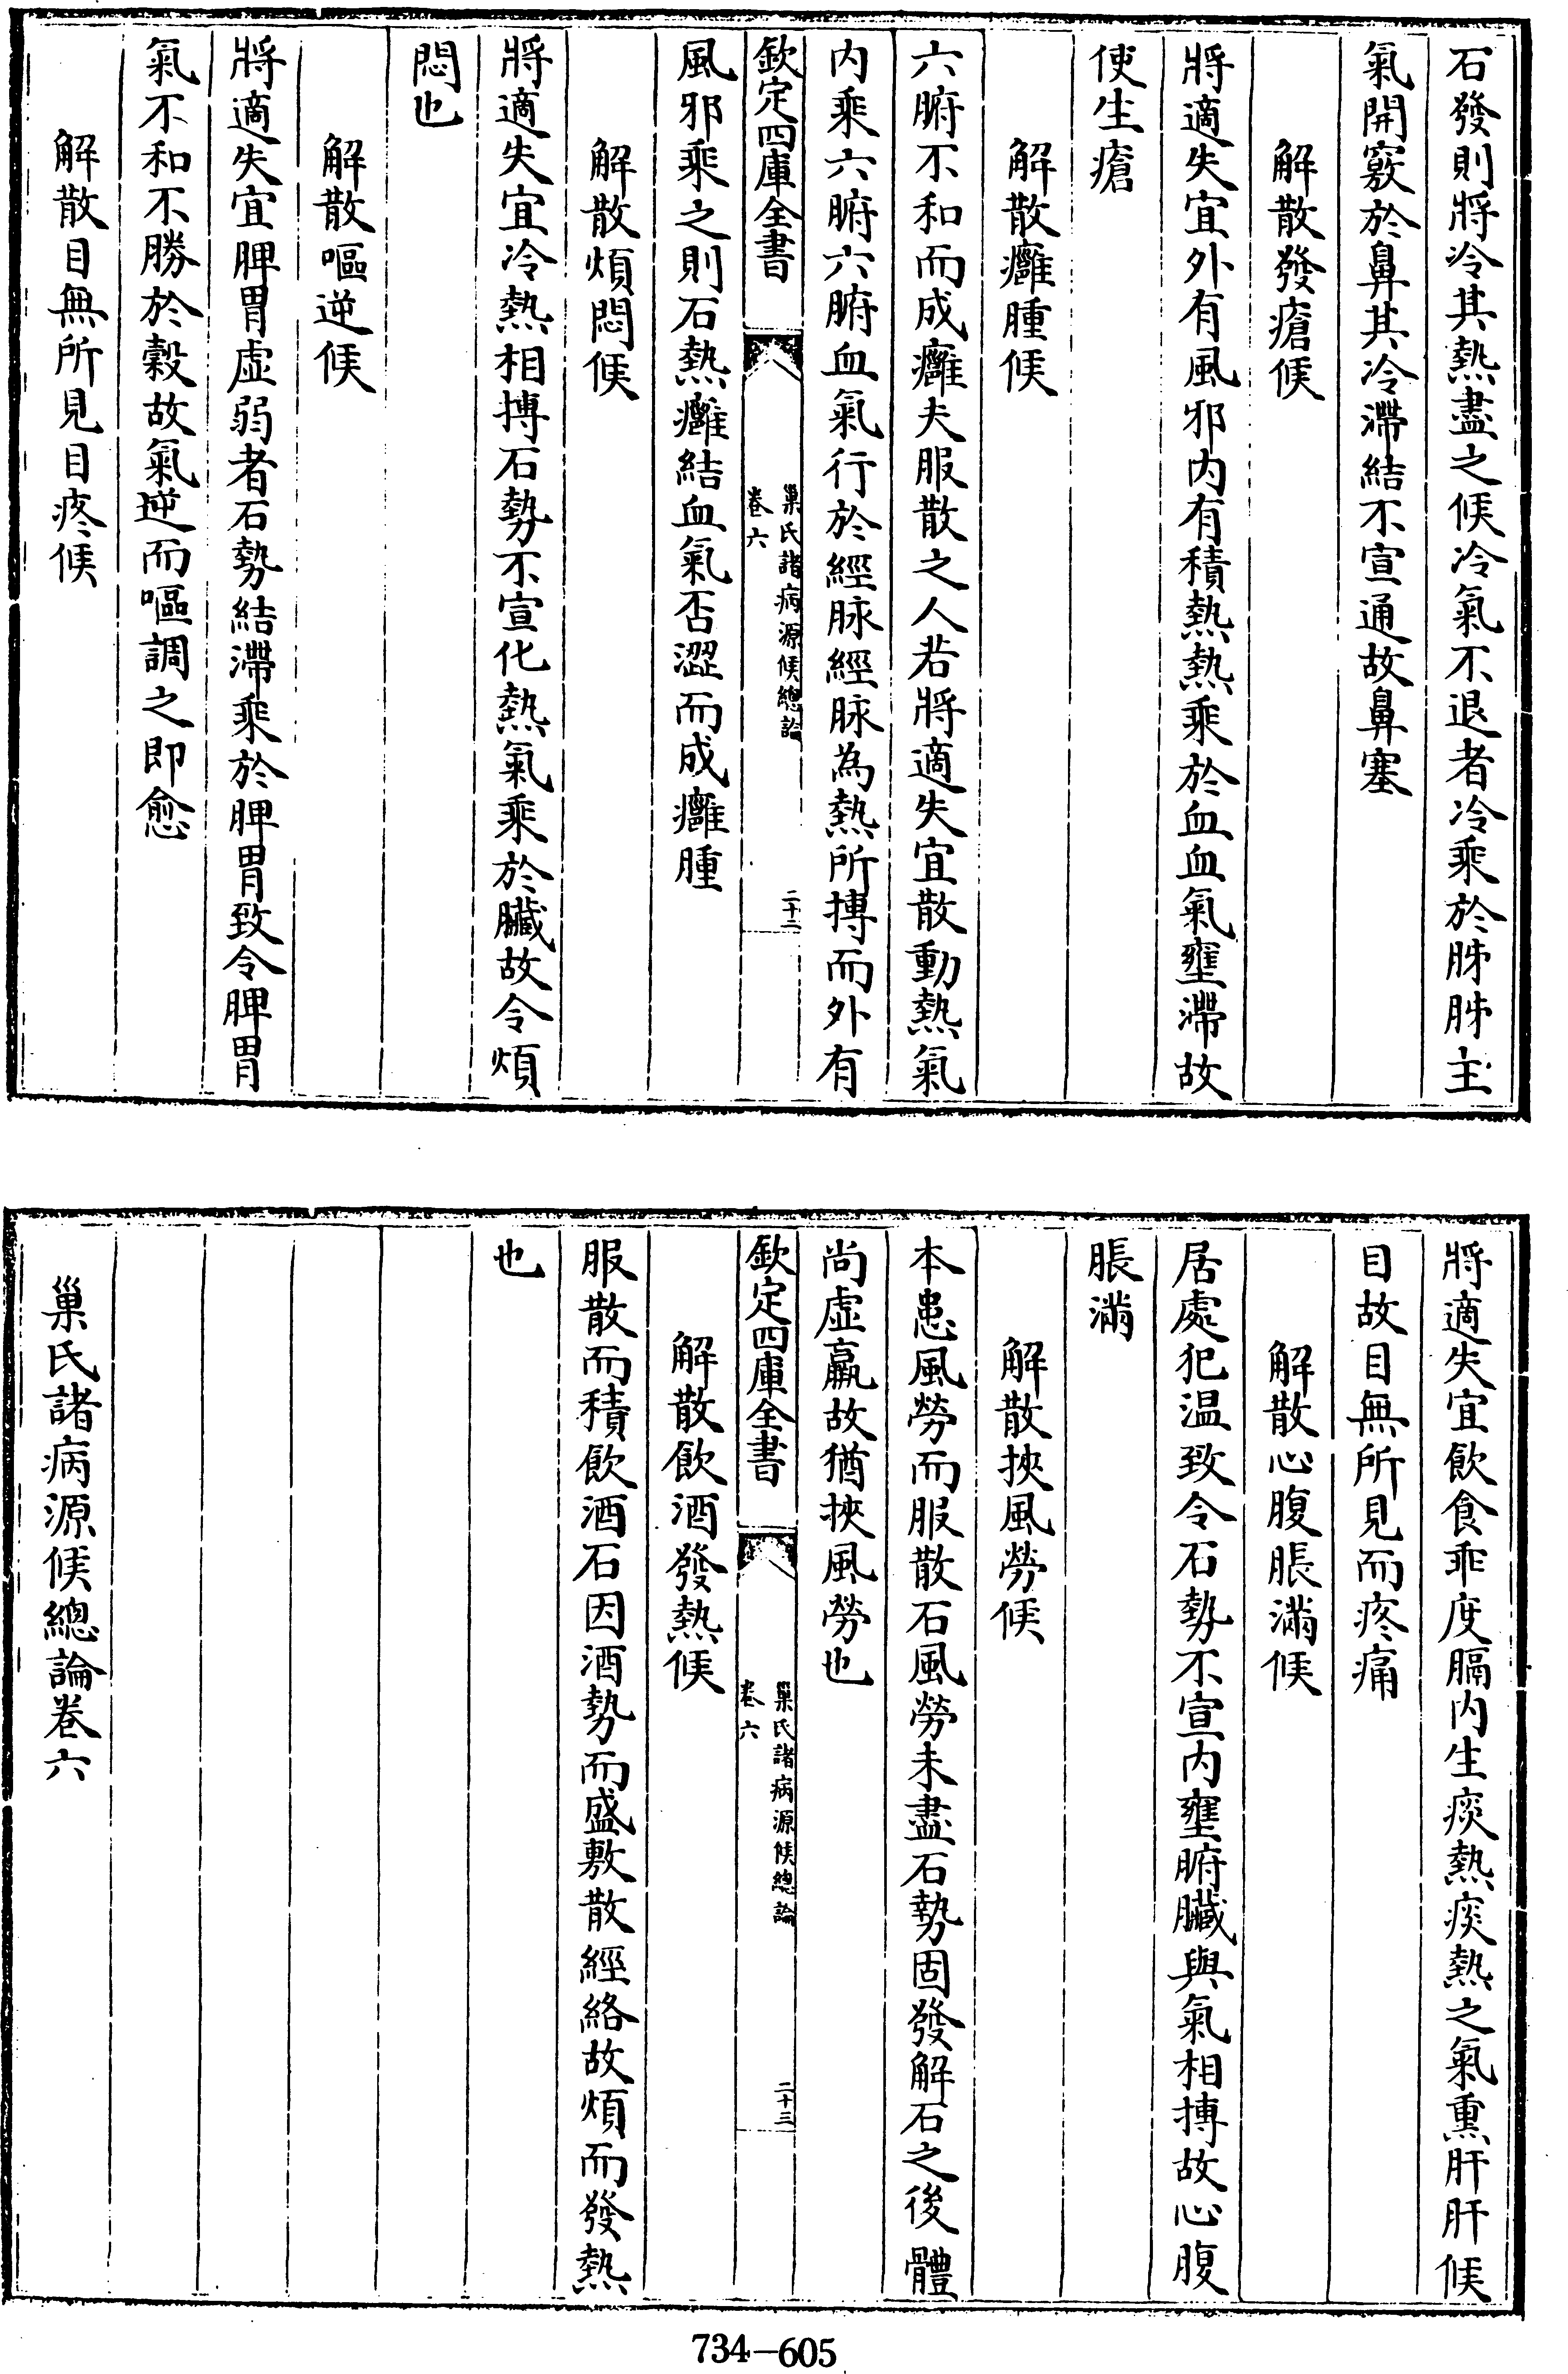 石發則將冷其熱盡之候冷氣不退者冷乘於肺肺主
氣開竅於鼻其冷滯結不宣通故鼻塞
解散發瘡候
將適失宜外有風邪内有積熱熱乘於血血氣壅滯故
使生瘡
解散癰腫候
六腑不和而成癰夫服散之人若將適失宜散動熱氣
内乘六腑六腑血氣行於經脉經脉為熱所搏而外有
欽定四庫全書
巢氏諸病源候總論
卷六
二十二
風邪乘之則石熱癰結血氣否澀而成癰腫
解散煩悶候
將適失宜冷熱相搏石勢不宣化熱氣乘於臟故令煩
悶也
解散嘔逆候
將適失宜脾胃虛弱者石勢結滯乘於脾胃致令脾胃
氣不和不勝於穀故氣逆而嘔調之即愈
解散目無所見目疼候
將適失宜飲食乖度膈内生痰熱痰熱之氣熏肝肝候
目故目無所見而疼痛
解散心腹脹滿候
居處犯温致令石勢不宣内壅腑臟與氣相搏故心腹
脹滿
解散挾風勞候
本患風勞而服散石風勞未盡石勢固發解石之後體
尚虛羸故猶挾風勞也
欽定四庫全書
巢氏諸病源候總論
卷六
二十三
解散飲酒發熱候
服散而積飲酒石因酒勢而盛敷散經絡故煩而發熱
也
巢氏諸病源候總論卷六
734—605